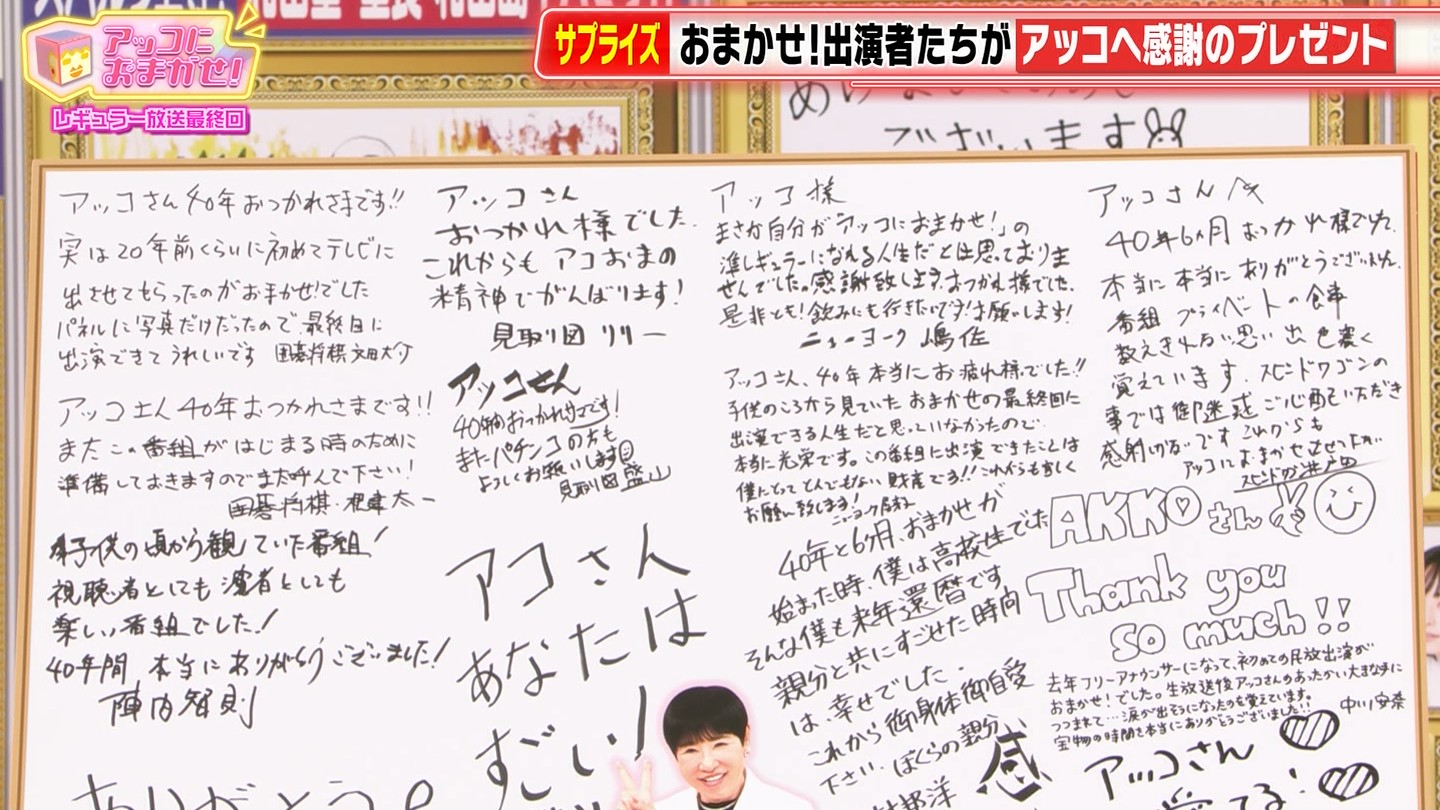 アッコに
おまかせ!
レギュラー放送最終回
サプライズ おまかせ!出演者たちが アッコへ感謝のプレゼント
ございます
アッコさん40年おつかれさまです!!
実は20年前くらいに初めてテレビに
出させてもらったのがおまかせ!でした
パネルに写真だけだったので最終日に
出演できてうれしいです 囲碁将棋 文田大介
アッコさん40年おつかれさまです!!
またこの番組がはじまる時のために
準備しておきますのでまた呼んで下さい!
囲碁将棋・根建太一
子供の頃から観ていた番組!
視聴者としても演者としても
楽しい番組でした!
40年間 本当にありがとうございました!
陣内智則
ありがとう。
アッコさん
おつかれ様でした。
これからも アコおまの
精神でがんばります!
見取り図 リリー
アッコさん
40年間おつかれサマです!
またパチンコの方も
よろしくお願いします
見取り図 盛山
アコさん
あなたは
すごい!
アッコ様
まさか自分が「アッコにおまかせ!」の
準レギュラーになれる人生だとは思っておりま
せんでした。感謝致します。おつかれ様でした。
是非とも!飲みにも行きたいです!お願いします!
ニューヨーク 嶋佐
アッコさん、40年本当にお疲れ様でした!!
子供のころから見ていた おまかせの最終回に
出演できる人生だと思っていなかったので
本当に光栄です。この番組に出演できたことは
僕にとって とんでもない財産です!!これからも宜しく
お願い致します! ニューヨーク屋敷
40年と6ヶ月、おまかせが
始まった時、僕は高校生でした
そんな僕も来年還暦です。
親分と共にすごせた時間
は、幸せでした。
これから御身体御自愛
下さい。ぼくらの親分
邦洋
感
アッコさんへ
40年6ヵ月 おつかれ様でした。
本当に本当にありがとうございました。
番組 プライベートの食事
数えきれない思い出 色濃く
覚えています。スピードワゴンの
事では御迷惑ご心配いただき
感謝しきれないです これからも
アッコにおまかせさせて下さい
スピードワゴン井戸田
AKKOさん
Thank you
so much!!
去年フリーアナウンサーになって、初めての民放出演が
おまかせ!でした。生放送後アッコさんのあったかい大きな手に
つつまれて…涙が出そうになったのを覚えています。
宝物の時間を本当にありがとうございました!! 中川安奈
アッコさん